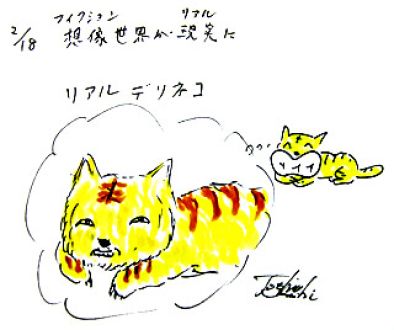 フィクション リアル
2/18 想像世界が現実に
リアル デリネコ